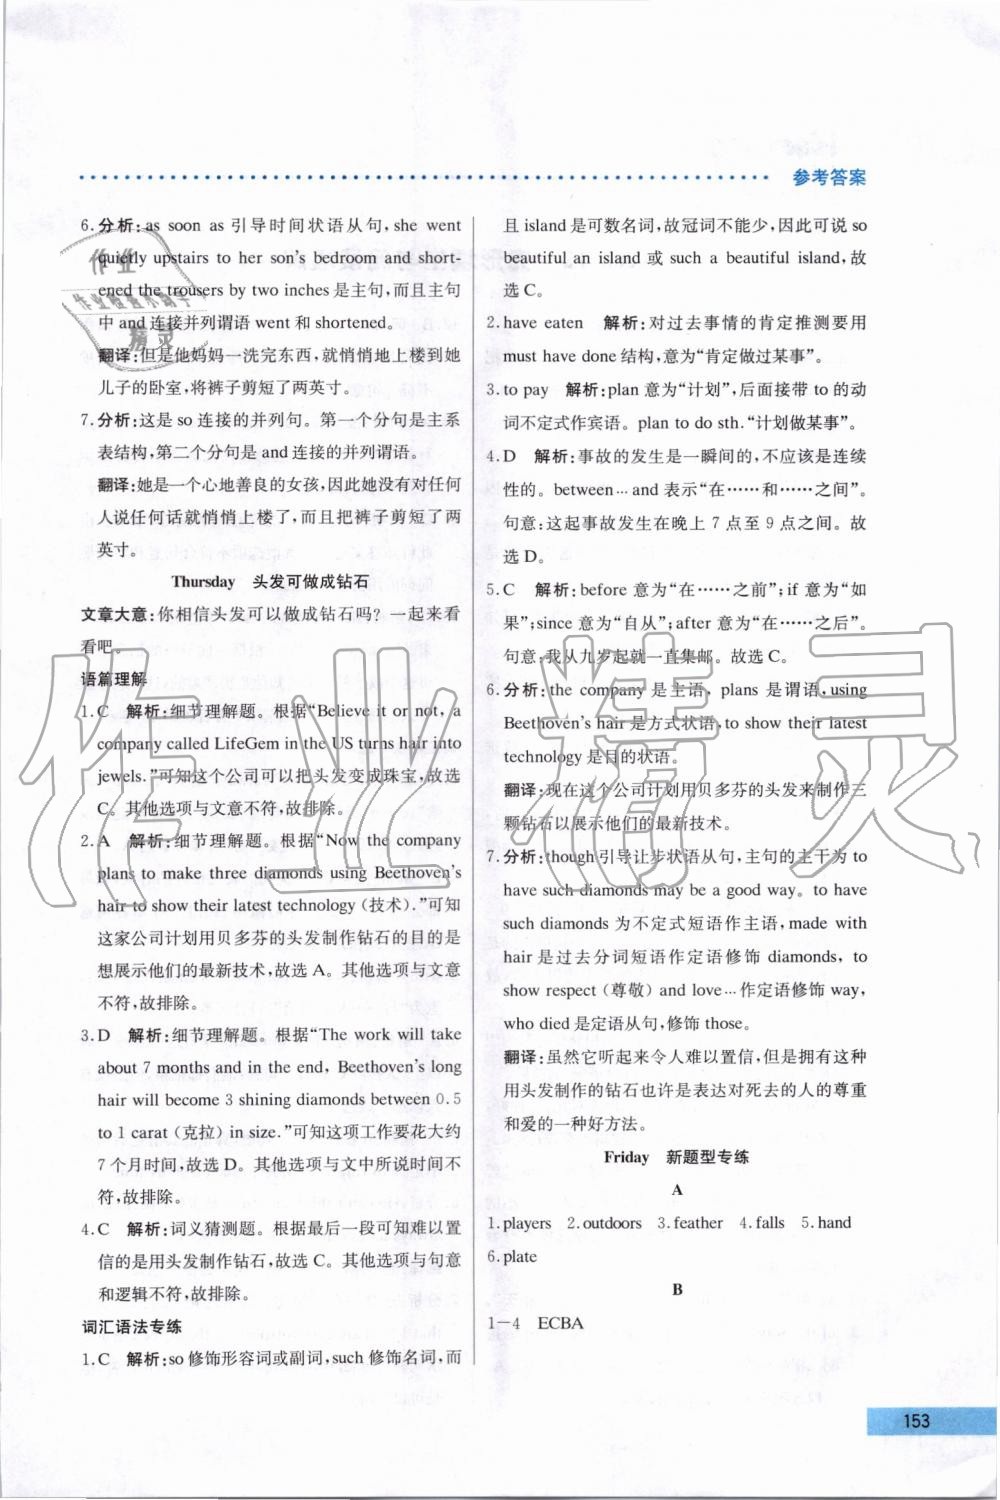 参考答案
6.分析:as soon as 引导时间状语从句,she went
quietly upstairs to her son's bedroom and short-
ened the trousers by two inches 是主句,而且主句
中 and 连接并列谓语 went 和 shortened。
翻译:但是他妈妈一洗完东西,就悄悄地上楼到她
儿子的卧室,将裤子剪短了两英寸。
7.分析:这是 so 连接的并列句。第一个分句是主系
表结构,第二个分句是 and 连接的并列谓语。
翻译:她是一个心地善良的女孩,因此她没有对任何
人说任何话就悄悄上楼了,而且把裤子剪短了两
英寸。
Thursday 头发可做成钻石
文章大意:你相信头发可以做成钻石吗? 一起来看
看吧。
语篇理解
1.C 解析:细节理解题。根据“Believe it or not, a
company called LifeGem in the US turns hair into
jewels.”可知这个公司可以把头发变成珠宝,故选
C。其他选项与文意不符,故排除。
2.A 解析:细节理解题。根据“Now the company
plans to make three diamonds using Beethoven's
hair to show their latest technology (技术).”可知
这家公司计划用贝多芬的头发制作钻石的目的是
想展示他们的最新技术,故选 A。其他选项与文意
不符,故排除。
3.D 解析:细节理解题。根据“The work will take
about 7 months and in the end, Beethoven's long
hair will become 3 shining diamonds between 0.5
to 1 carat (克拉) in size.”可知这项工作要花大约
7 个月时间,故选 D。其他选项与文中所说时间不
符,故排除。
4.C 解析:词义猜测题。根据最后一段可知难以置
信的是用头发制作钻石,故选 C。其他选项与句意
和逻辑不符,故排除。
词汇语法专练
1.C 解析:so 修饰形容词或副词,such 修饰名词,而
且 island 是可数名词,故冠词不能少,因此可说 so
beautiful an island 或 such a beautiful island,故
选 C。
2.have eaten 解析:对过去事情的肯定推测要用
must have done 结构,意为“肯定做过某事”。
3.to pay 解析:plan 意为“计划”,后面接带 to 的动
词不定式作宾语。plan to do sth.“计划做某事”。
4.D 解析:事故的发生是一瞬间的,不应该是连续
性的。between…and 表示“在……和……之间”。
句意:这起事故发生在晚上 7 点至 9 点之间。故
选 D。
5.C 解析:before 意为“在……之前”;if 意为“如
果”;since 意为“自从”;after 意为“在……之后”。
句意:我从九岁起就一直集邮。故选 C。
6.分析:the company 是主语,plans 是谓语,using
Beethoven's hair 是方式状语,to show their latest
technology 是目的状语。
翻译:现在这个公司计划用贝多芬的头发来制作三
颗钻石以展示他们的最新技术。
7.分析:though 引导让步状语从句,主句的主干为 to
have such diamonds may be a good way。to have
such diamonds 为不定式短语作主语,made with
hair 是过去分词短语作定语修饰 diamonds, to
show respect (尊敬) and love…作定语修饰 way,
who died 是定语从句,修饰 those。
翻译:虽然它听起来令人难以置信,但是拥有这种
用头发制作的钻石也许是表达对死去的人的尊重
和爱的一种好方法。
Friday 新题型专练
A
1.players 2.outdoors 3.feather 4.falls 5.hand
6.plate
B
1-4 ECBA
153
作业精灵